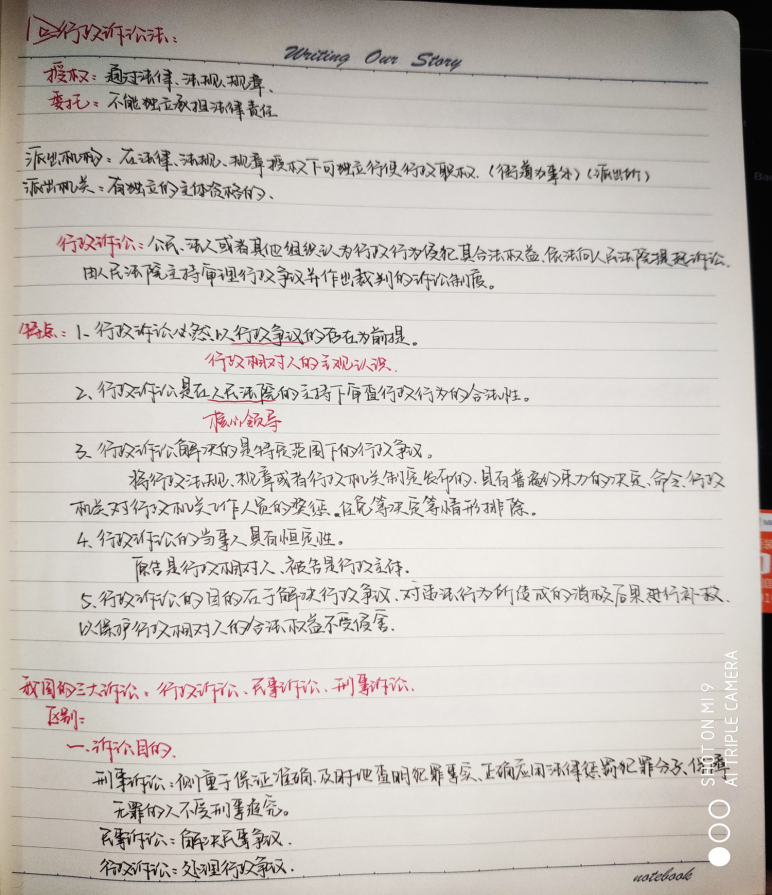 行政诉讼法:
Writing Our Story
授权: 通过法律、法规、规章、
委托: 不能独立承担法律责任
派出机构: 在法律、法规、规章授权下可独立行使行政职权. (街道办事处) (派出所)
派出机关: 有独立的主体资格的、
行政诉讼: 公民、法人或者其他组织认为行政行为侵犯其合法权益、依法向人民法院提起诉讼、
由人民法院主持审理行政争议并作出裁判的诉讼制度。
特点: 1、行政诉讼必然以行政争议的存在为前提。
行政相对人的主观认识.
2、行政诉讼是在人民法院的主持下审查行政行为的合法性。
核心领导
3、行政诉讼解决的是特定范围下的行政争议。
将行政法规、规章或者行政机关制定发布的、具有普遍约束力的决定、命令、行政
机关对行政机关工作人员的奖惩、任免等决定等情形排除。
4、行政诉讼的当事人具有恒定性。
原告是行政相对人、被告是行政主体.
5、行政诉讼的目的在于解决行政争议、对违法行为所造成的消极后果进行补救、
以保护行政相对人的合法权益不受侵害.
我国的三大诉讼: 行政诉讼、民事诉讼、刑事诉讼.
区别:
一、诉讼目的、
刑事诉讼: 侧重于保证准确、及时地查明犯罪事实、正确应用法律惩罚犯罪分子、保障
无罪的人不受刑事追究。
民事诉讼: 解决民事争议.
行政诉讼: 处理行政争议.
notebook
SHOT ON MI 9
AI TRIPLE CAMERA